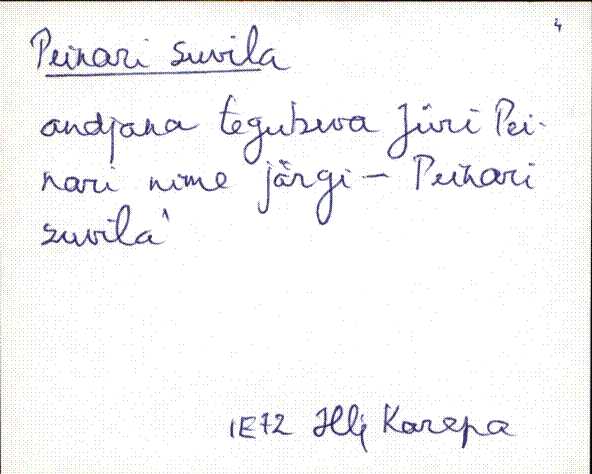 4
Peinari suvila
andjana tegutseva Jüri Pei-
nari nime järgi – Peinari
suvila
IE72 Hlj Karepa